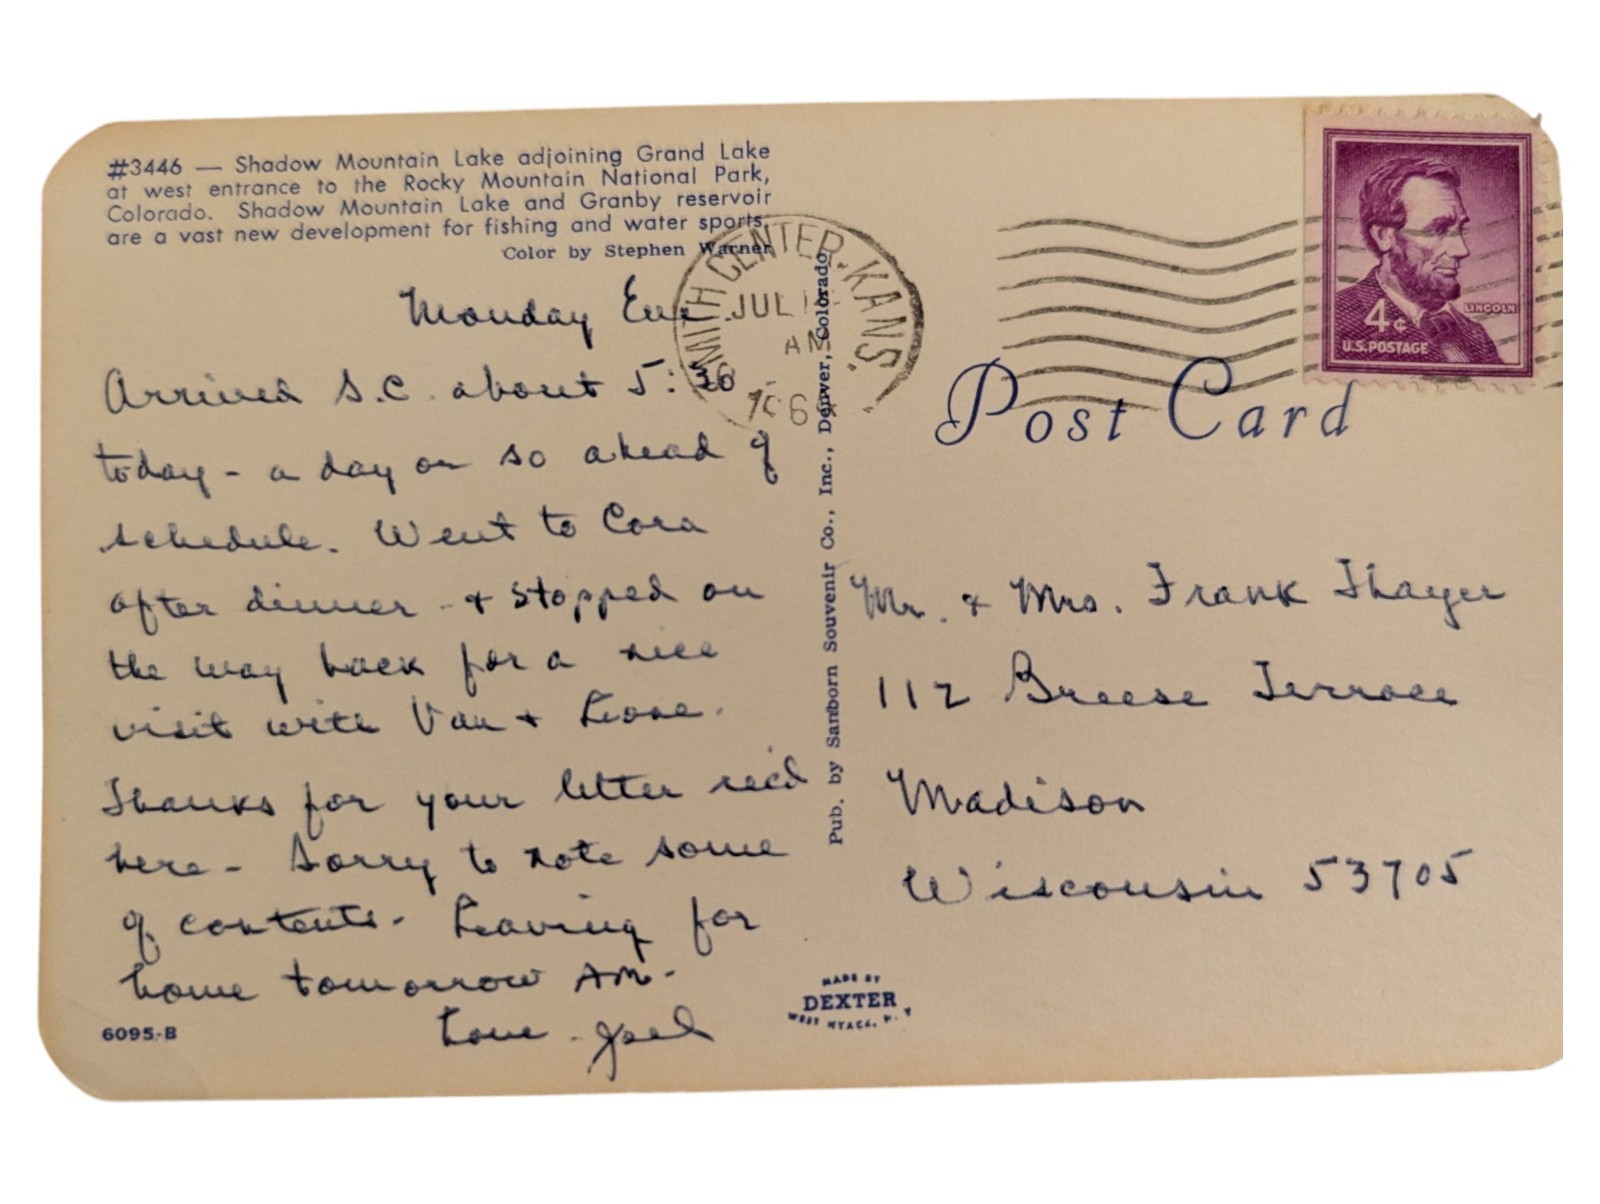 #3446 — Shadow Mountain Lake adjoining Grand Lake
at west entrance to the Rocky Mountain National Park,
Colorado. Shadow Mountain Lake and Granby reservoir
are a vast new development for fishing and water sports.
Color by Stephen Warner
Monday Eve.
Arrived S.C. about 5:30
today - a day or so ahead of
schedule. Went to Cora
after dinner - & stopped on
the way back for a nice
visit with Van & Leone.
Thanks for your letter rec'd
here - Sorry to note some
of contents. Leaving for
home tomorrow AM -
Love - Joel
6095-B
Pub. by Sanborn Souvenir Co., Inc., Denver, Colorado
MADE BY
DEXTER
WEST NYACK, N. Y.
SMITH CENTER, KANS.
JUL
AM
4¢
LINCOLN
U.S. POSTAGE
Post Card
Mr. & Mrs. Frank Thayer
112 Breese Terrace
Madison
Wisconsin 53705